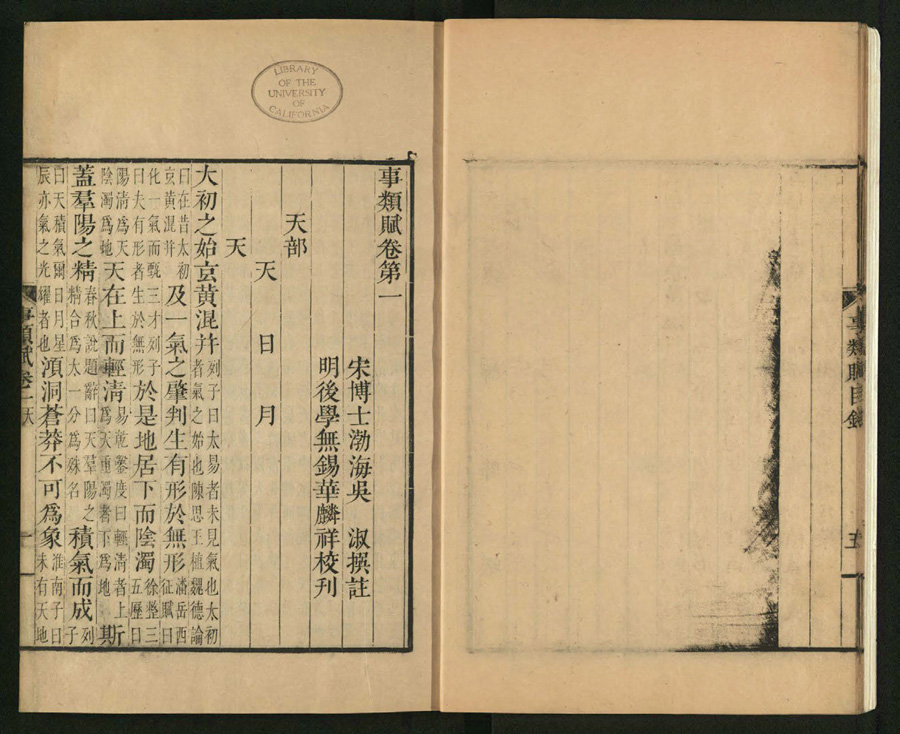 事類賦目錄 五
LIBRARY
OF THE
UNIVERSITY
OF
CALIFORNIA
事類賦卷第一
宋博士渤海吳 淑撰註
明後學無錫華麟祥校刊
天部
天 日 月
天
大初之始玄黃混并列子曰太易者未見氣也太初者氣之始也陳思王植魏德論
曰在昔太初玄黃混并及一氣之肇判生有形於無形潘岳西征賦曰
化一氣而甄三才列子曰夫有形者生於無形於是地居下而陰濁徐整三五歷曰
陽清爲天陰濁爲地天在上而輕清易乾鑿度曰輕清者上爲天重濁者下爲地斯
蓋羣陽之精春秋說題辭曰天羣陽之精合爲太一分爲殊名積氣而成列子
曰天積氣爾日月星辰亦氣之光耀者也澒洞蒼莽不可爲象淮南子曰未有天地
事類賦卷一 天 一